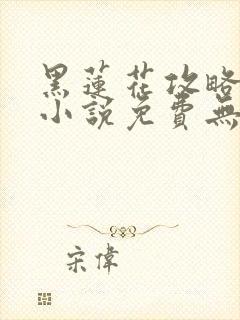 黑蓮花攻略
小說免費無
宋偉